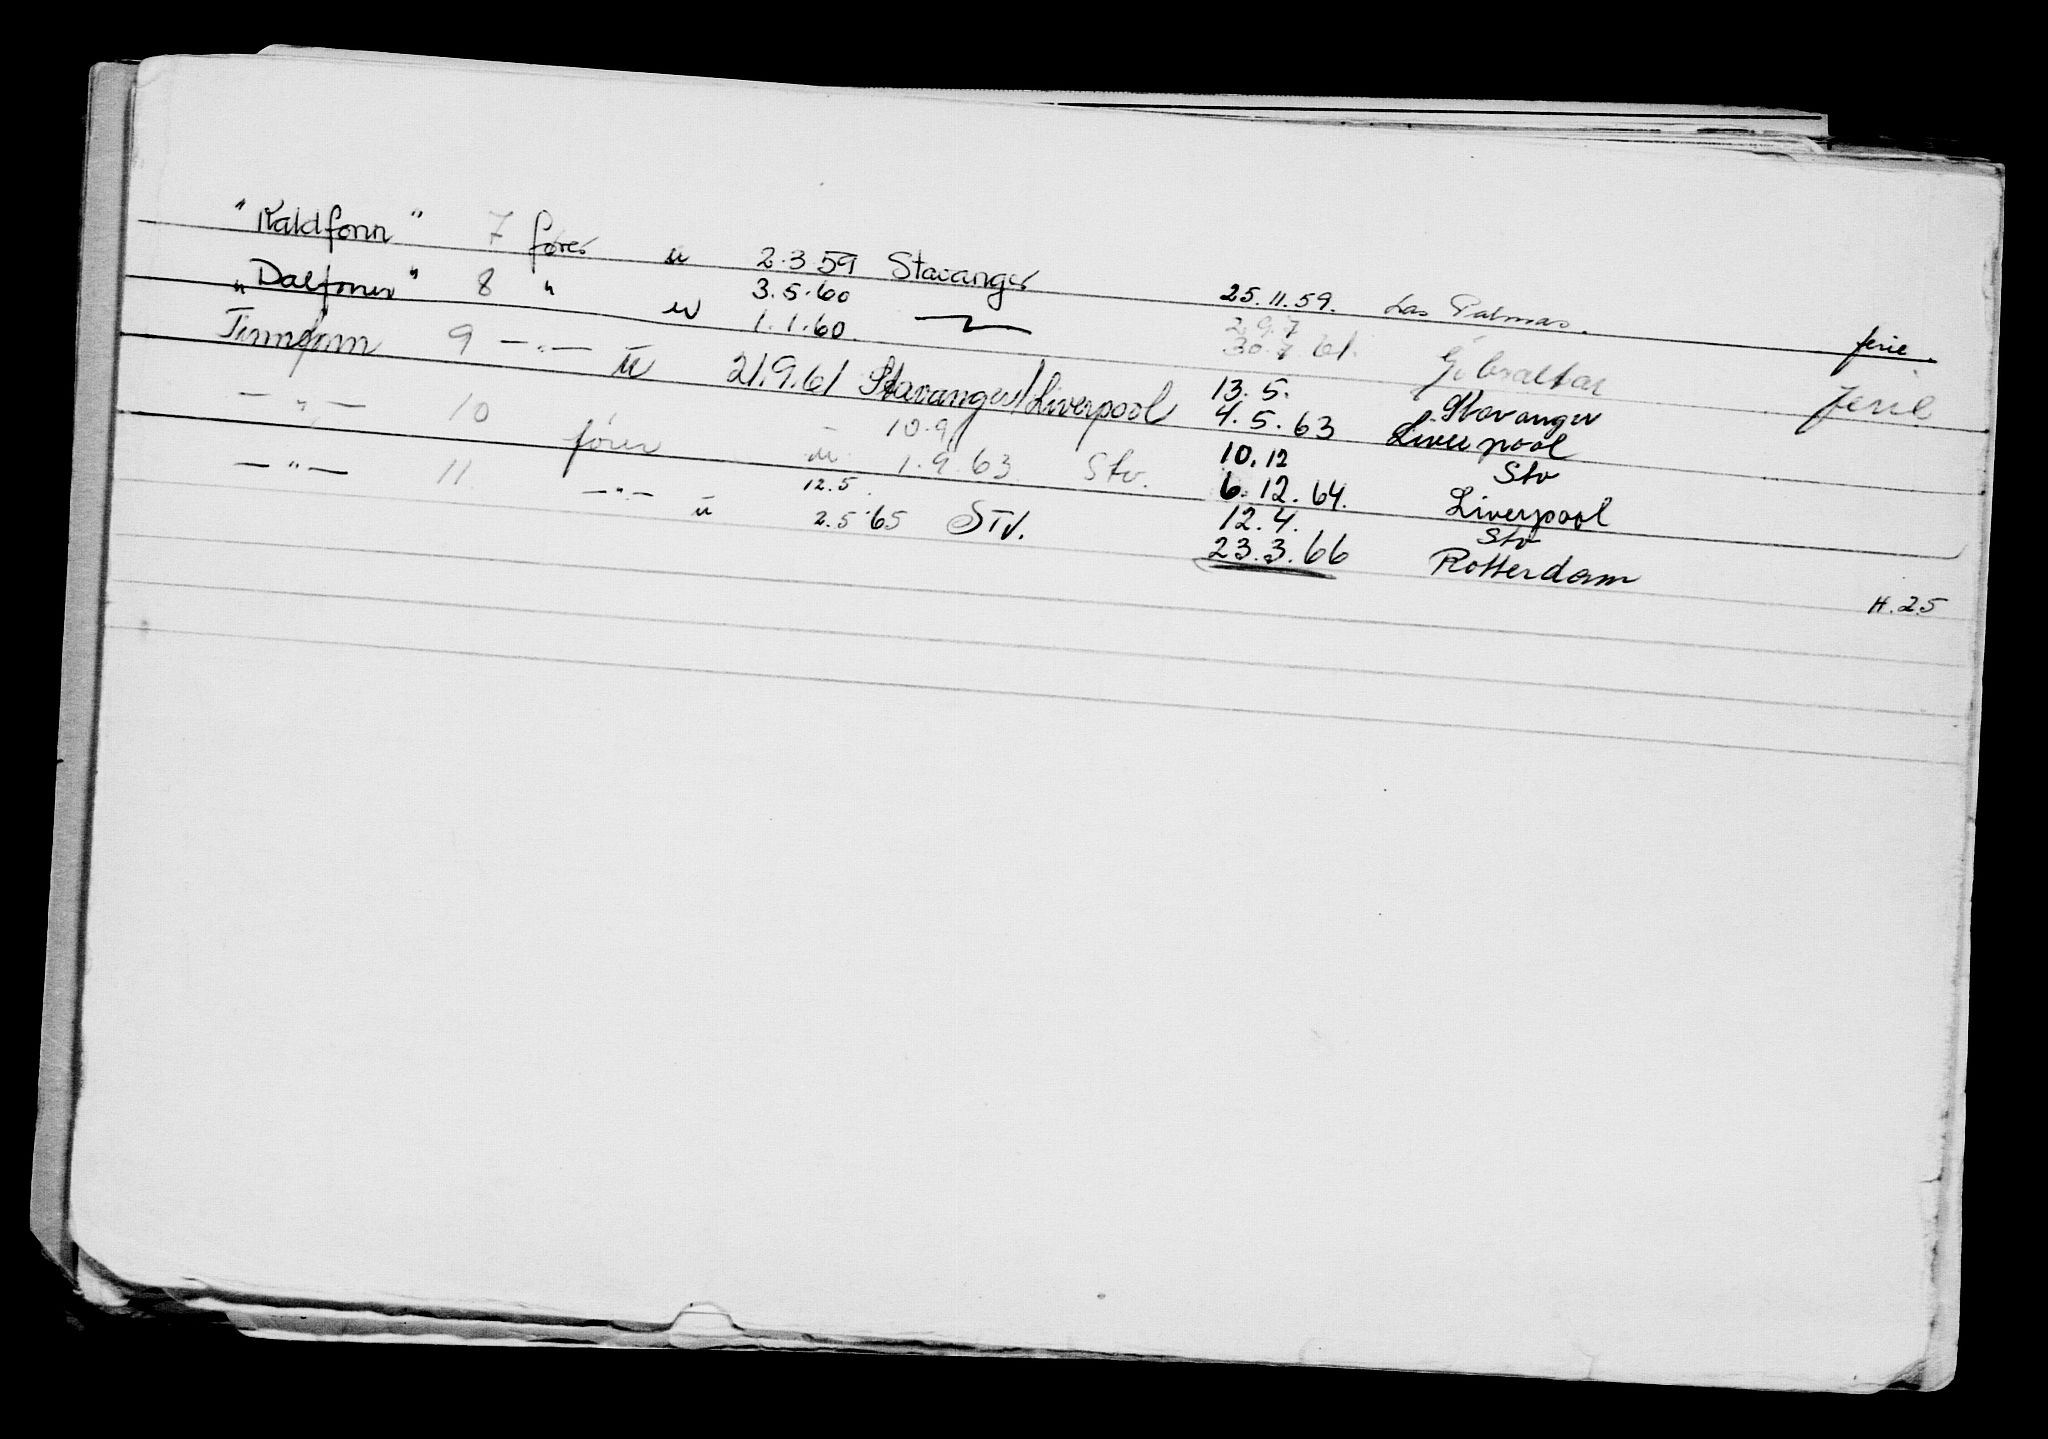 "Kaldfonn" 7 fører u 2.3.59 Stavanger 25.11.59. Las Palmas. ferie.
"Dalfonn" 8 " u 3.5.60 1.1.60. 29.7 30.7.61. Gibraltar ferie
Finnfonn 9 —"— u 21.9.61 Stavanger/Liverpool 13.5. Stavanger 4.5.63 Liverpool
—"— 10 fører u 10.9 1.9.63 Stv. 10.12 Stv 6.12.64. Liverpool
—"— 11 —"— u 12.5. 2.5.65 STV. 12.4. Stv 23.3.66 Rotterdam H.25